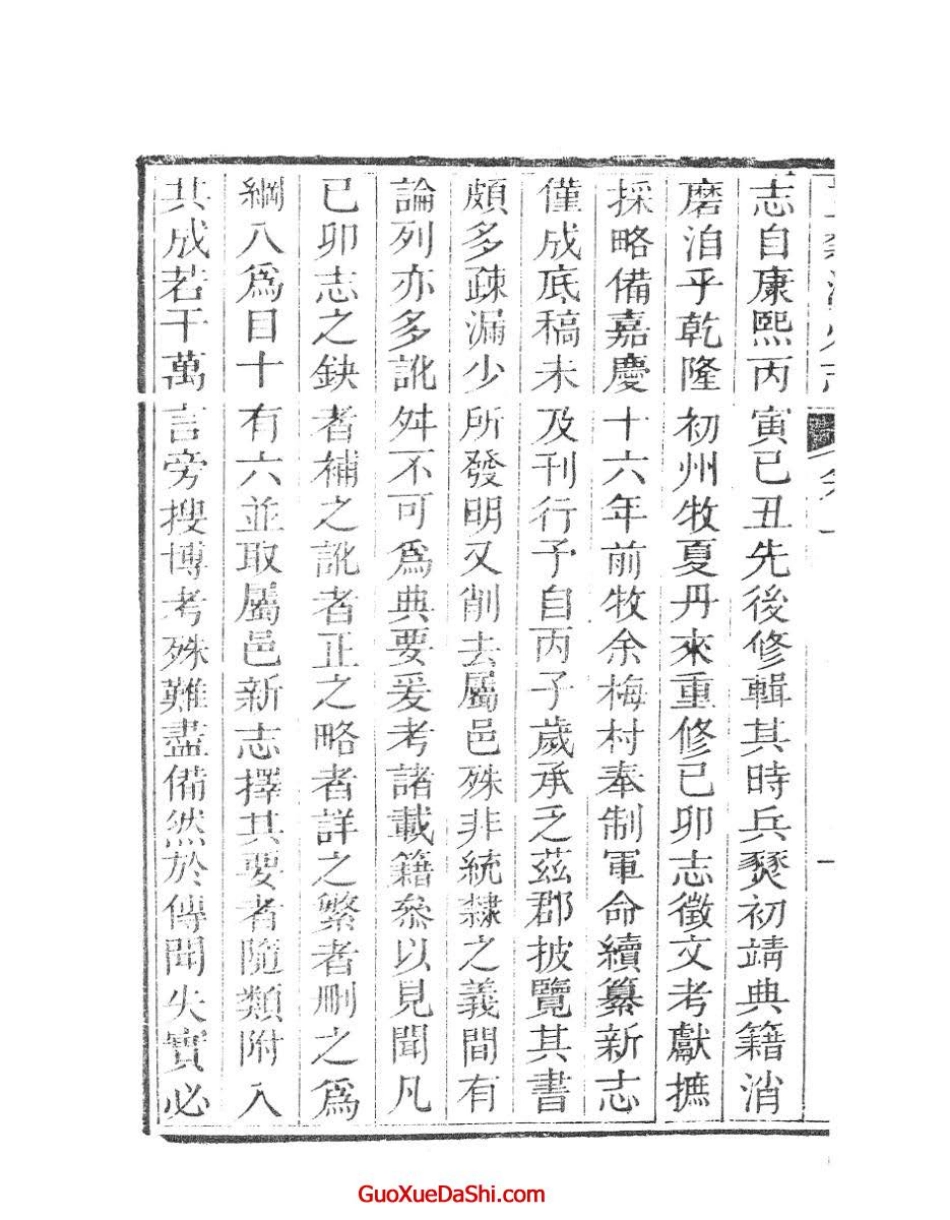 志自康熙丙寅己丑先後修輯其時兵燹初靖典籍消
磨洎乎乾隆初州牧夏丹來重修己卯志徵文考獻摭
採略備嘉慶十六年前牧余梅村奉制軍命續纂新志
僅成底稿未及刊行予自丙子歲承乏茲郡披覽其書
頗多疎漏少所發明又削去屬邑殊非統隷之義間有
論列亦多訛舛不可爲典要爰考諸載籍叅以見聞凡
已卯志之缺者補之訛者正之略者詳之繁者刪之爲
綱八爲目十有六並取屬邑新志擇其要者隨類附入
共成若干萬言旁搜博考殊難盡備然於傳聞失實必
GuoXueDaShi.com